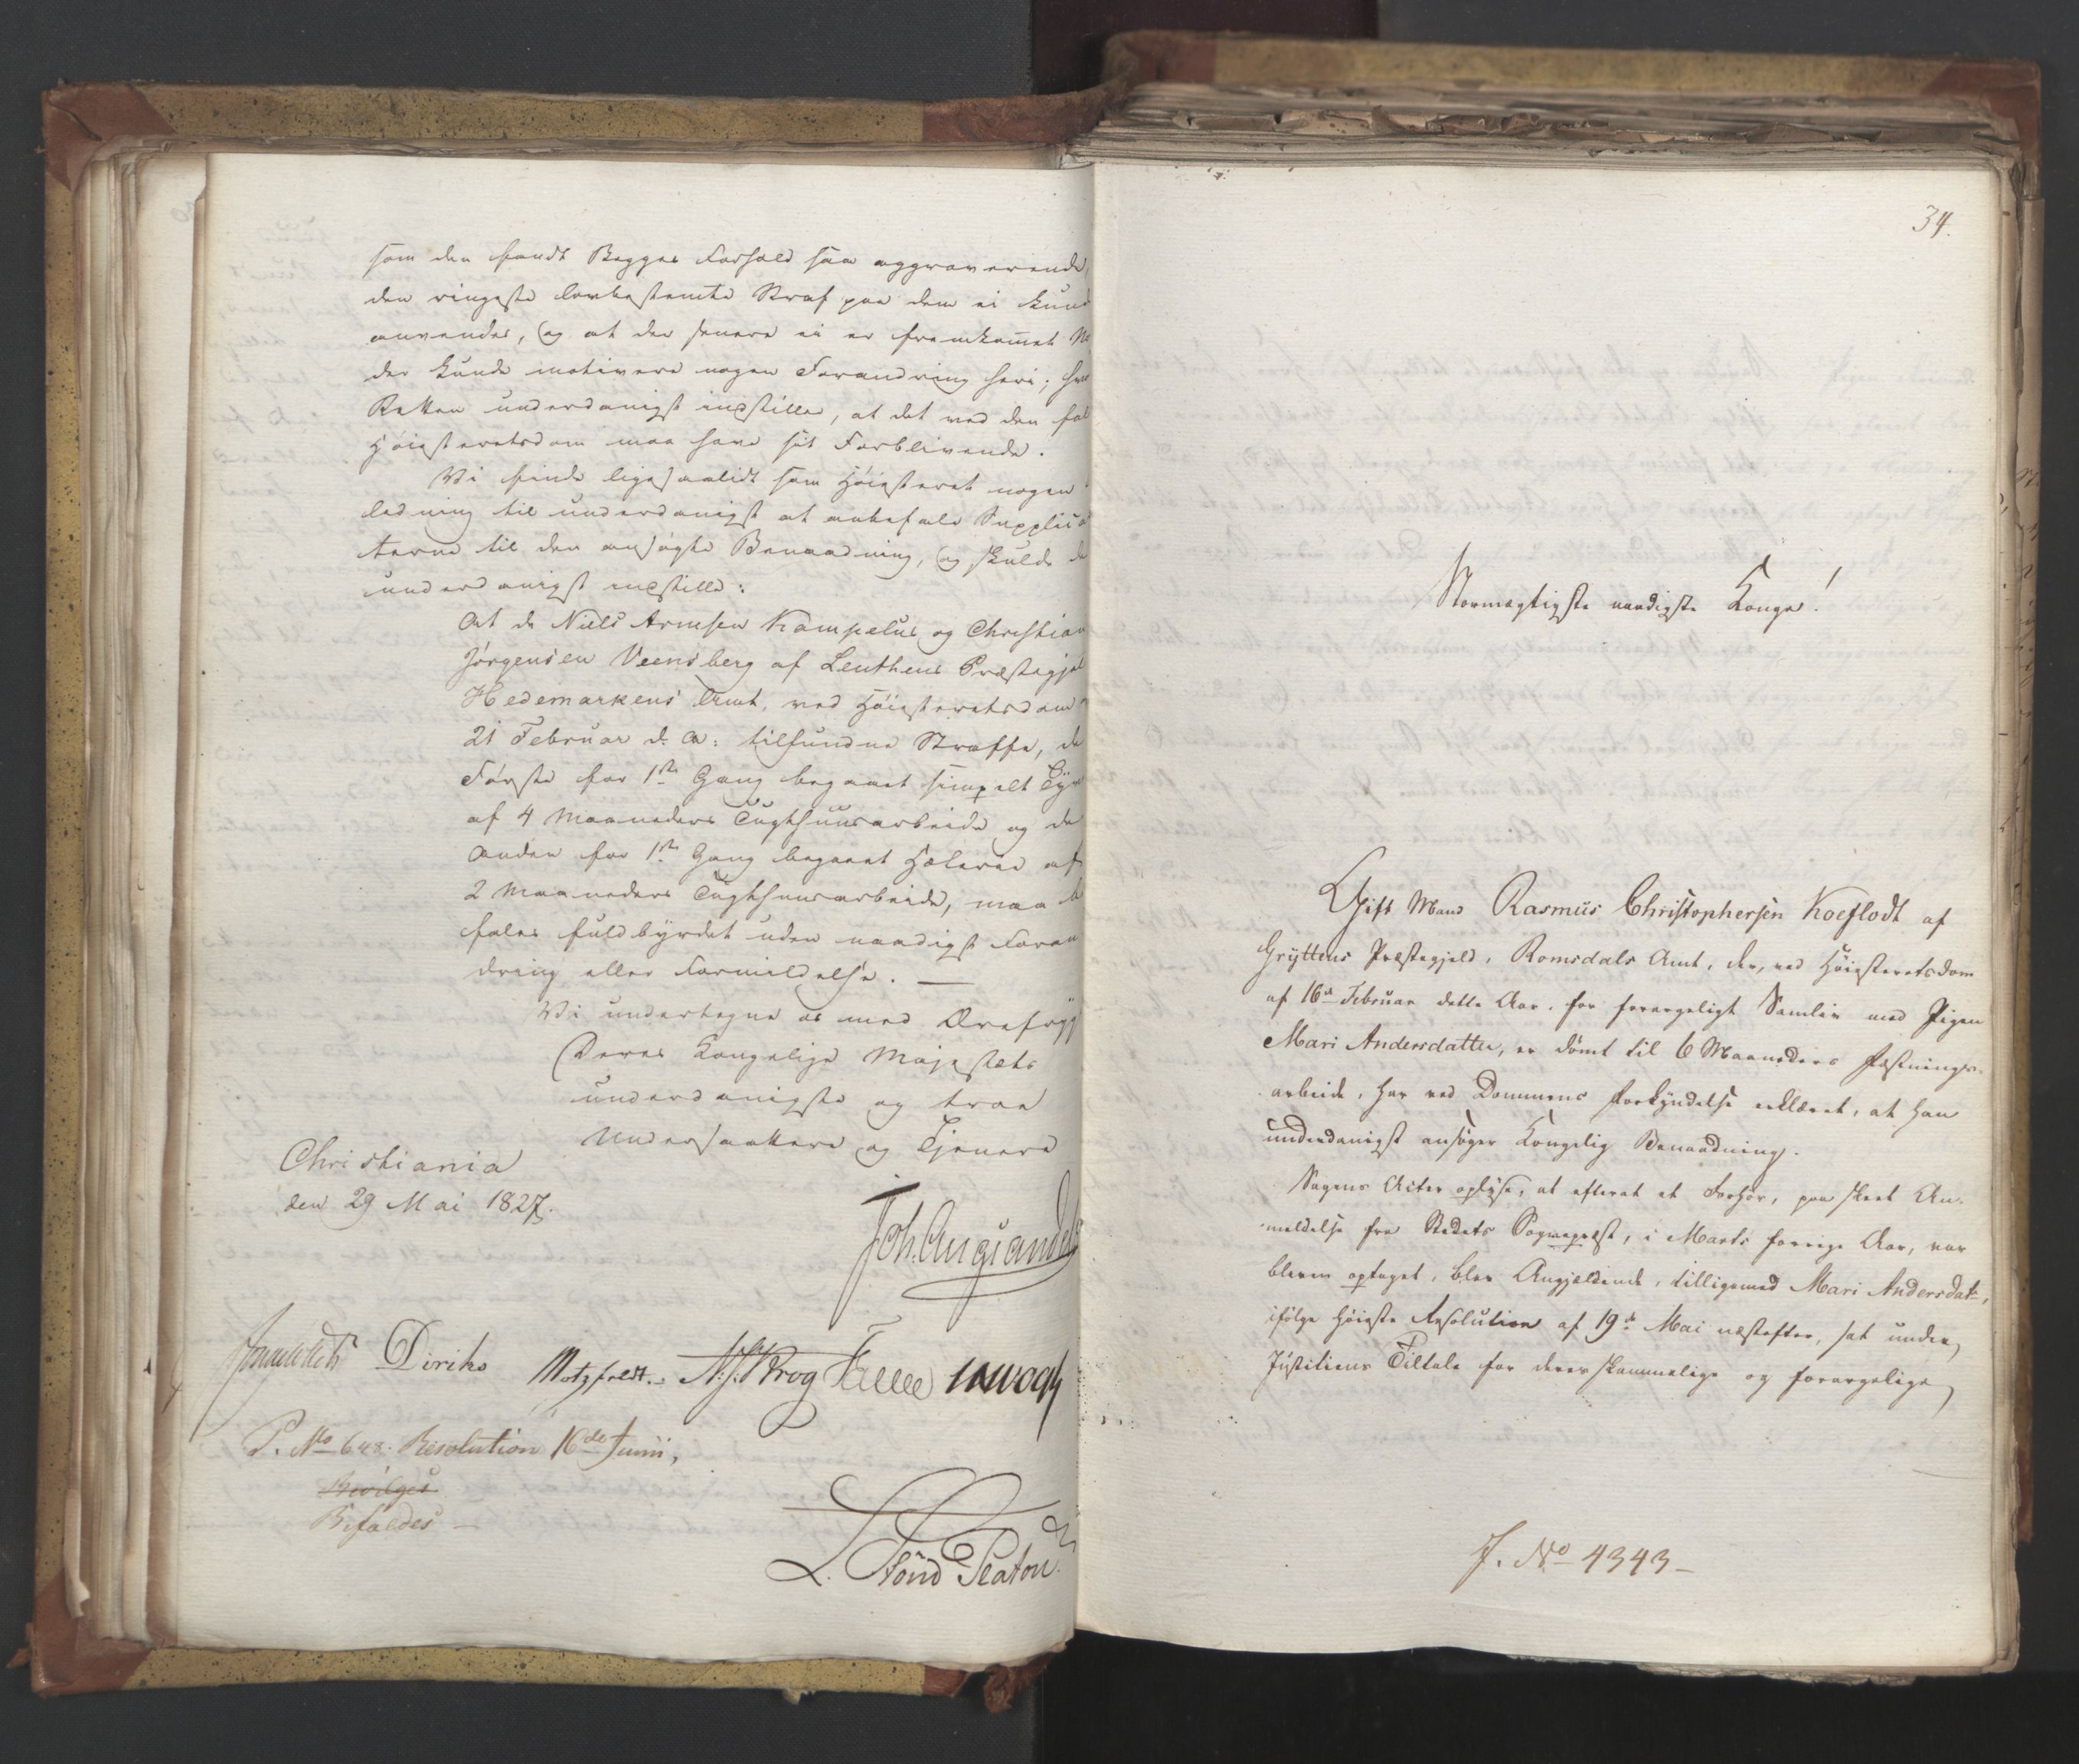 som den fandt Begges Forhold saa aggraverende,
den ringeste lovbestemte Straf paa dem ei kund
anvendes, og at der senere ei er fremkommet
der kunde motivere nogen Forandring heri; hvor
Retten underdanigst indstiller, at det ved den fal
Høiesteretsdom maa have sit Forblivende.
Vi finde ligesaalidt som Høiesteret nogen
ledning til underdanigst at anbefale Supplica
terne til den ansøgte Benaadning, og skulde
underdanigst indstille:
At de Niels Arnesen Kampelus og Christian
Jørgensen Veensberg af Leuthens Præstegjel
Hedemarkens Amt, ved Høiesteretsdom
21 Februar d. A. tilfundne Straffe, de
Første for 1ste Gang begaaet simpelt Tyv
af 4 Maaneders Tugthuusarbeide og de
Anden for 1ste Gang begaaet Hæleri af
2 Maaneders Tugthuusarbeide, maa
fales fuldbyrdet uden naadigst Foran
dring eller Formildelse. —
Vi undertegne os med Ærefrygt
Deres Kongelige Majestæts
underdanigste og troe
Undersaatter og Tjenere
Christiania
den 29 Mai 1827.
Diriks Motzfeldt. N. J. Krog
P. No 648. Resolution 16de Junii,
Bevilges
Bifaldes —
34.
Stormægtigste naadigste Konge!
Gift Mand Rasmus Christophersen Koeflodt af
Gryttens Præstegjeld, Romsdals Amt, der, ved Høiesteretsdom
af 16de Februar dette Aar, for forargeligt Samliv med Pigen
Mari Andersdatter, er dømt til 6 Maaneders Fæstnings-
arbeide, har ved Dommens Forkyndelse erklæret, at han
underdanigst ansøger Kongelig Benaadning.
Sagens Acter oplyse, at efterat et Forhør, paa skeet An-
meldelse fra Stedets Sognepræst, i Marts forrige Aar, var
bleven optaget, blev Angjældende, tilligemed Mari Andersdatr,
ifølge høieste Resolution af 19de Mai næstefter, sat under
Justitiens Tiltale for deres skammelige og forargelige
J. No 4343 —